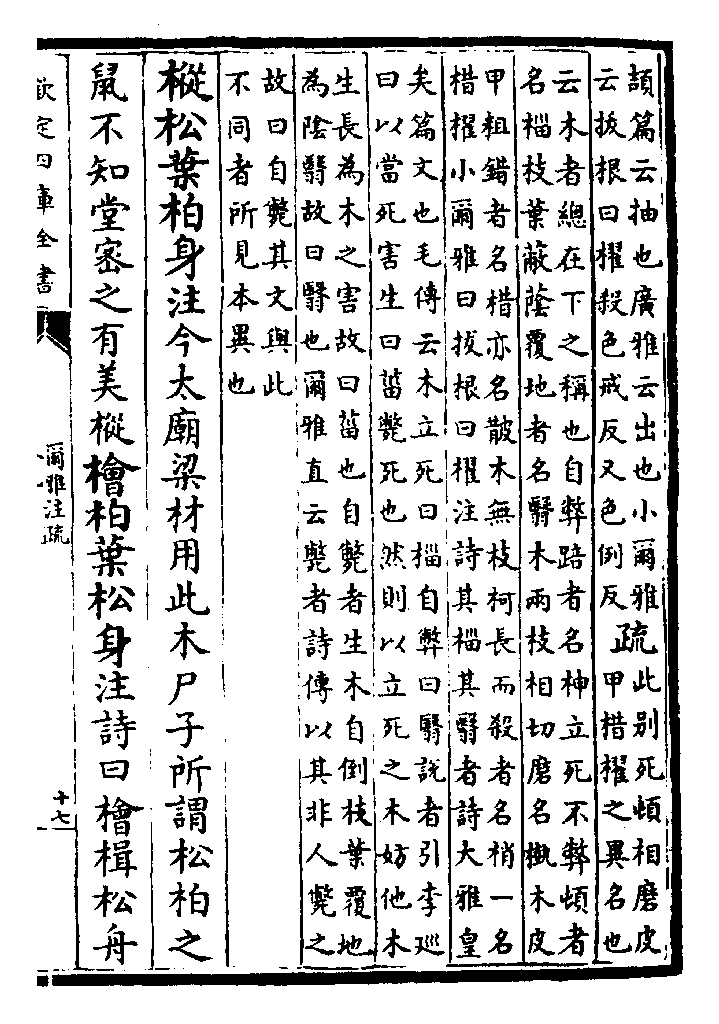 頡篇云抽也廣雅云出也小爾雅
云拔根曰櫂殺色戒反又色倒反
疏
此别死頓相磨皮
甲棤櫂之異名也
云木者總在下之稱也自弊踣者名神立死不弊頓者
名椔枝葉蔽蔭覆地者名翳木兩枝相切磨名槸木皮
甲粗錯者名棤亦名皵木無枝柯長而殺者名梢一名
棤櫂小爾雅曰拔根曰櫂注詩其椔其翳者詩大雅皇
矣篇文也毛傳云木立死曰椔自弊曰翳説者引李廵
曰以當死害生曰菑斃死也然則以立死之木妨他木
生長為木之害故曰菑也自斃者生木自倒枝葉覆地
為陰翳故曰翳也爾雅直云斃者詩傳以其非人斃之
故曰自斃其文與此
不同者所見本異也
樅松葉柏身注今太廟梁材用此木尸子所謂松柏之
鼠不知堂密之有美樅檜柏葉松身注詩曰檜楫松舟
欽定四庫全書
爾雅注疏
十七